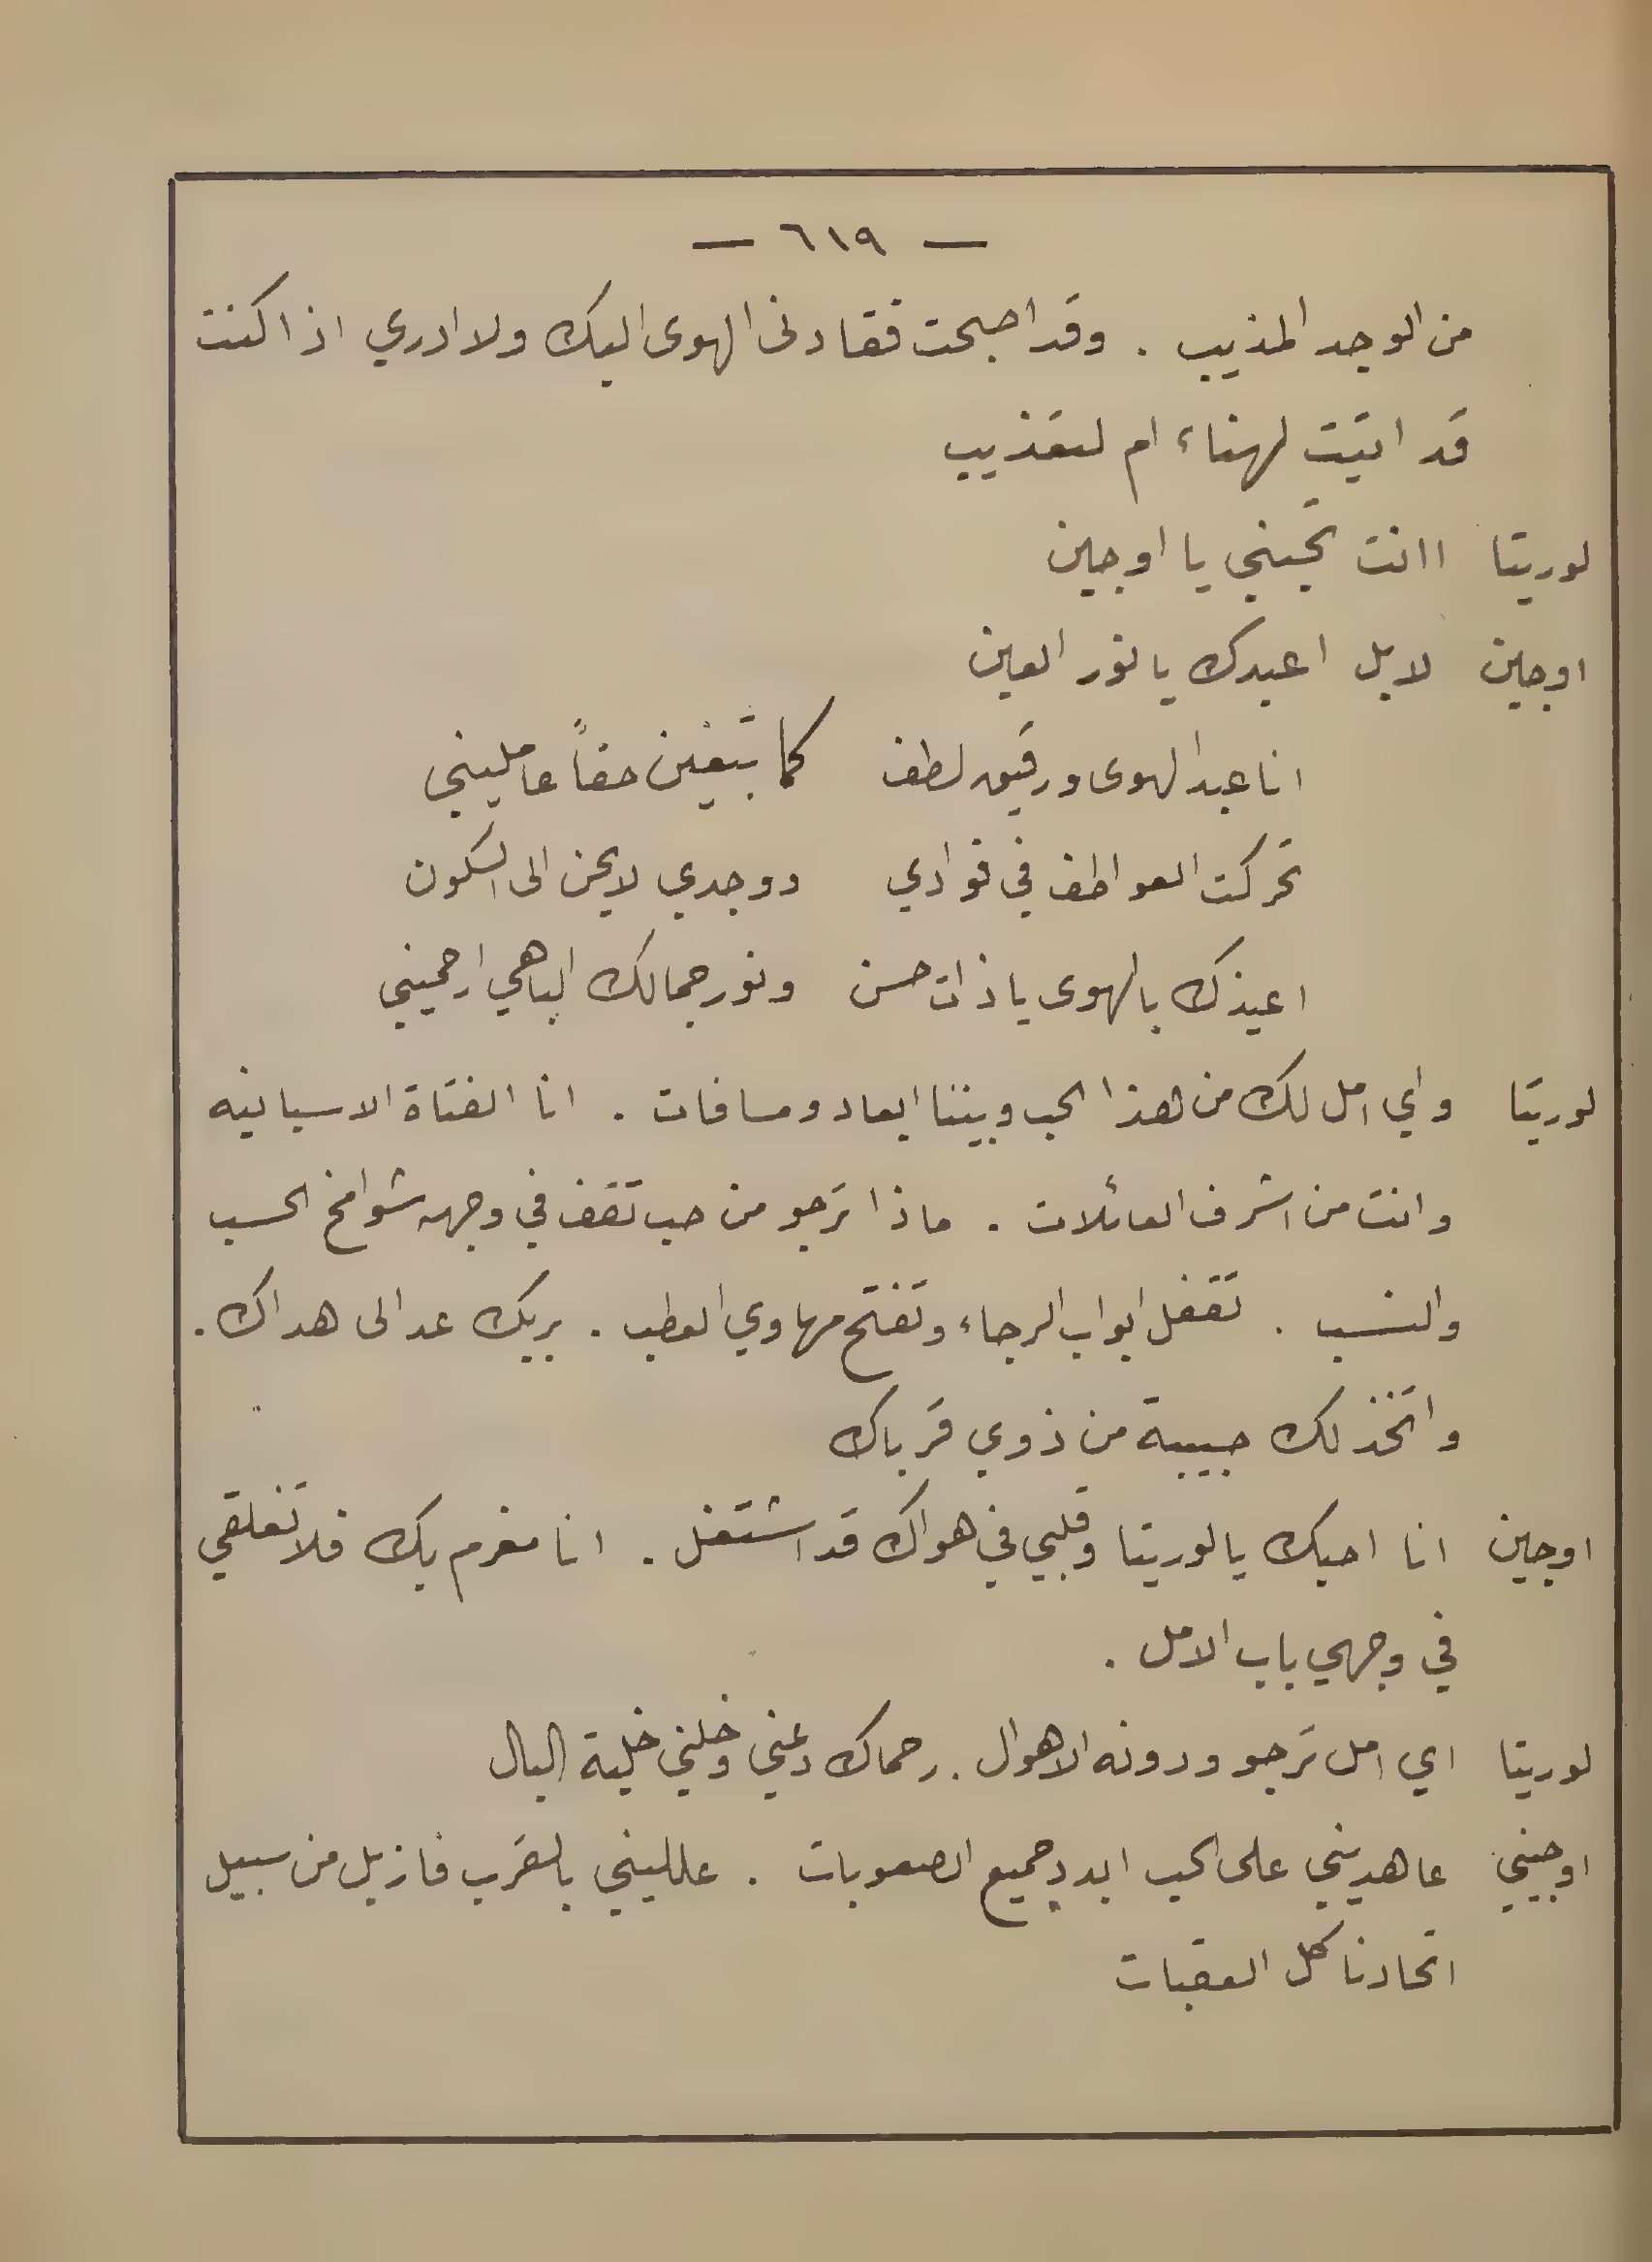 — ٦١٩ —
من الوجد المذيب . وقد اصبحت فقادنى الهوى اليك ولا ادري اذا كنت
قد اتيت لهناء ام لتعذيب
لوريتا اانت تحبني يا اوجين
اوجين لا بل اعبدك يا نور العين
انا عبد الهوى ورقيق لطف كما تبغين حقاً عامليني
تحركت العواطف في فوادي ووجدي لا يحن الى السكون
اعيذك بالهوى يا ذات حسن ونور جمالك الباهي ارحميني
لوريتا واي امل لك من هذا الحب وبيننا ابعاد ومسافات . انا الفتاة الاسبانيه
وانت من اشرف العائلات . ماذا ترجو من حب تقف في وجهه شوامخ الحسب
والنسب . تقفل ابواب الرجاء وتفتح مهاوي العطب . بربك عد الى هداك .
واتخذ لك حبيبة من ذوي قرباك
اوجين انا احبك يا لوريتا وقلبي في هواك قد اشتغل . انا مغرم بك فلا تغلقي
في وجهي باب الامل .
لوريتا اي امل ترجو ودونه الاهوال . رحماك دعني وخلني خلية البال
اوجيني عاهديني على الحب ابدد جميع الصعوبات . عللليني بالقرب فازيل من سبيل
اتحادنا كل العقبات